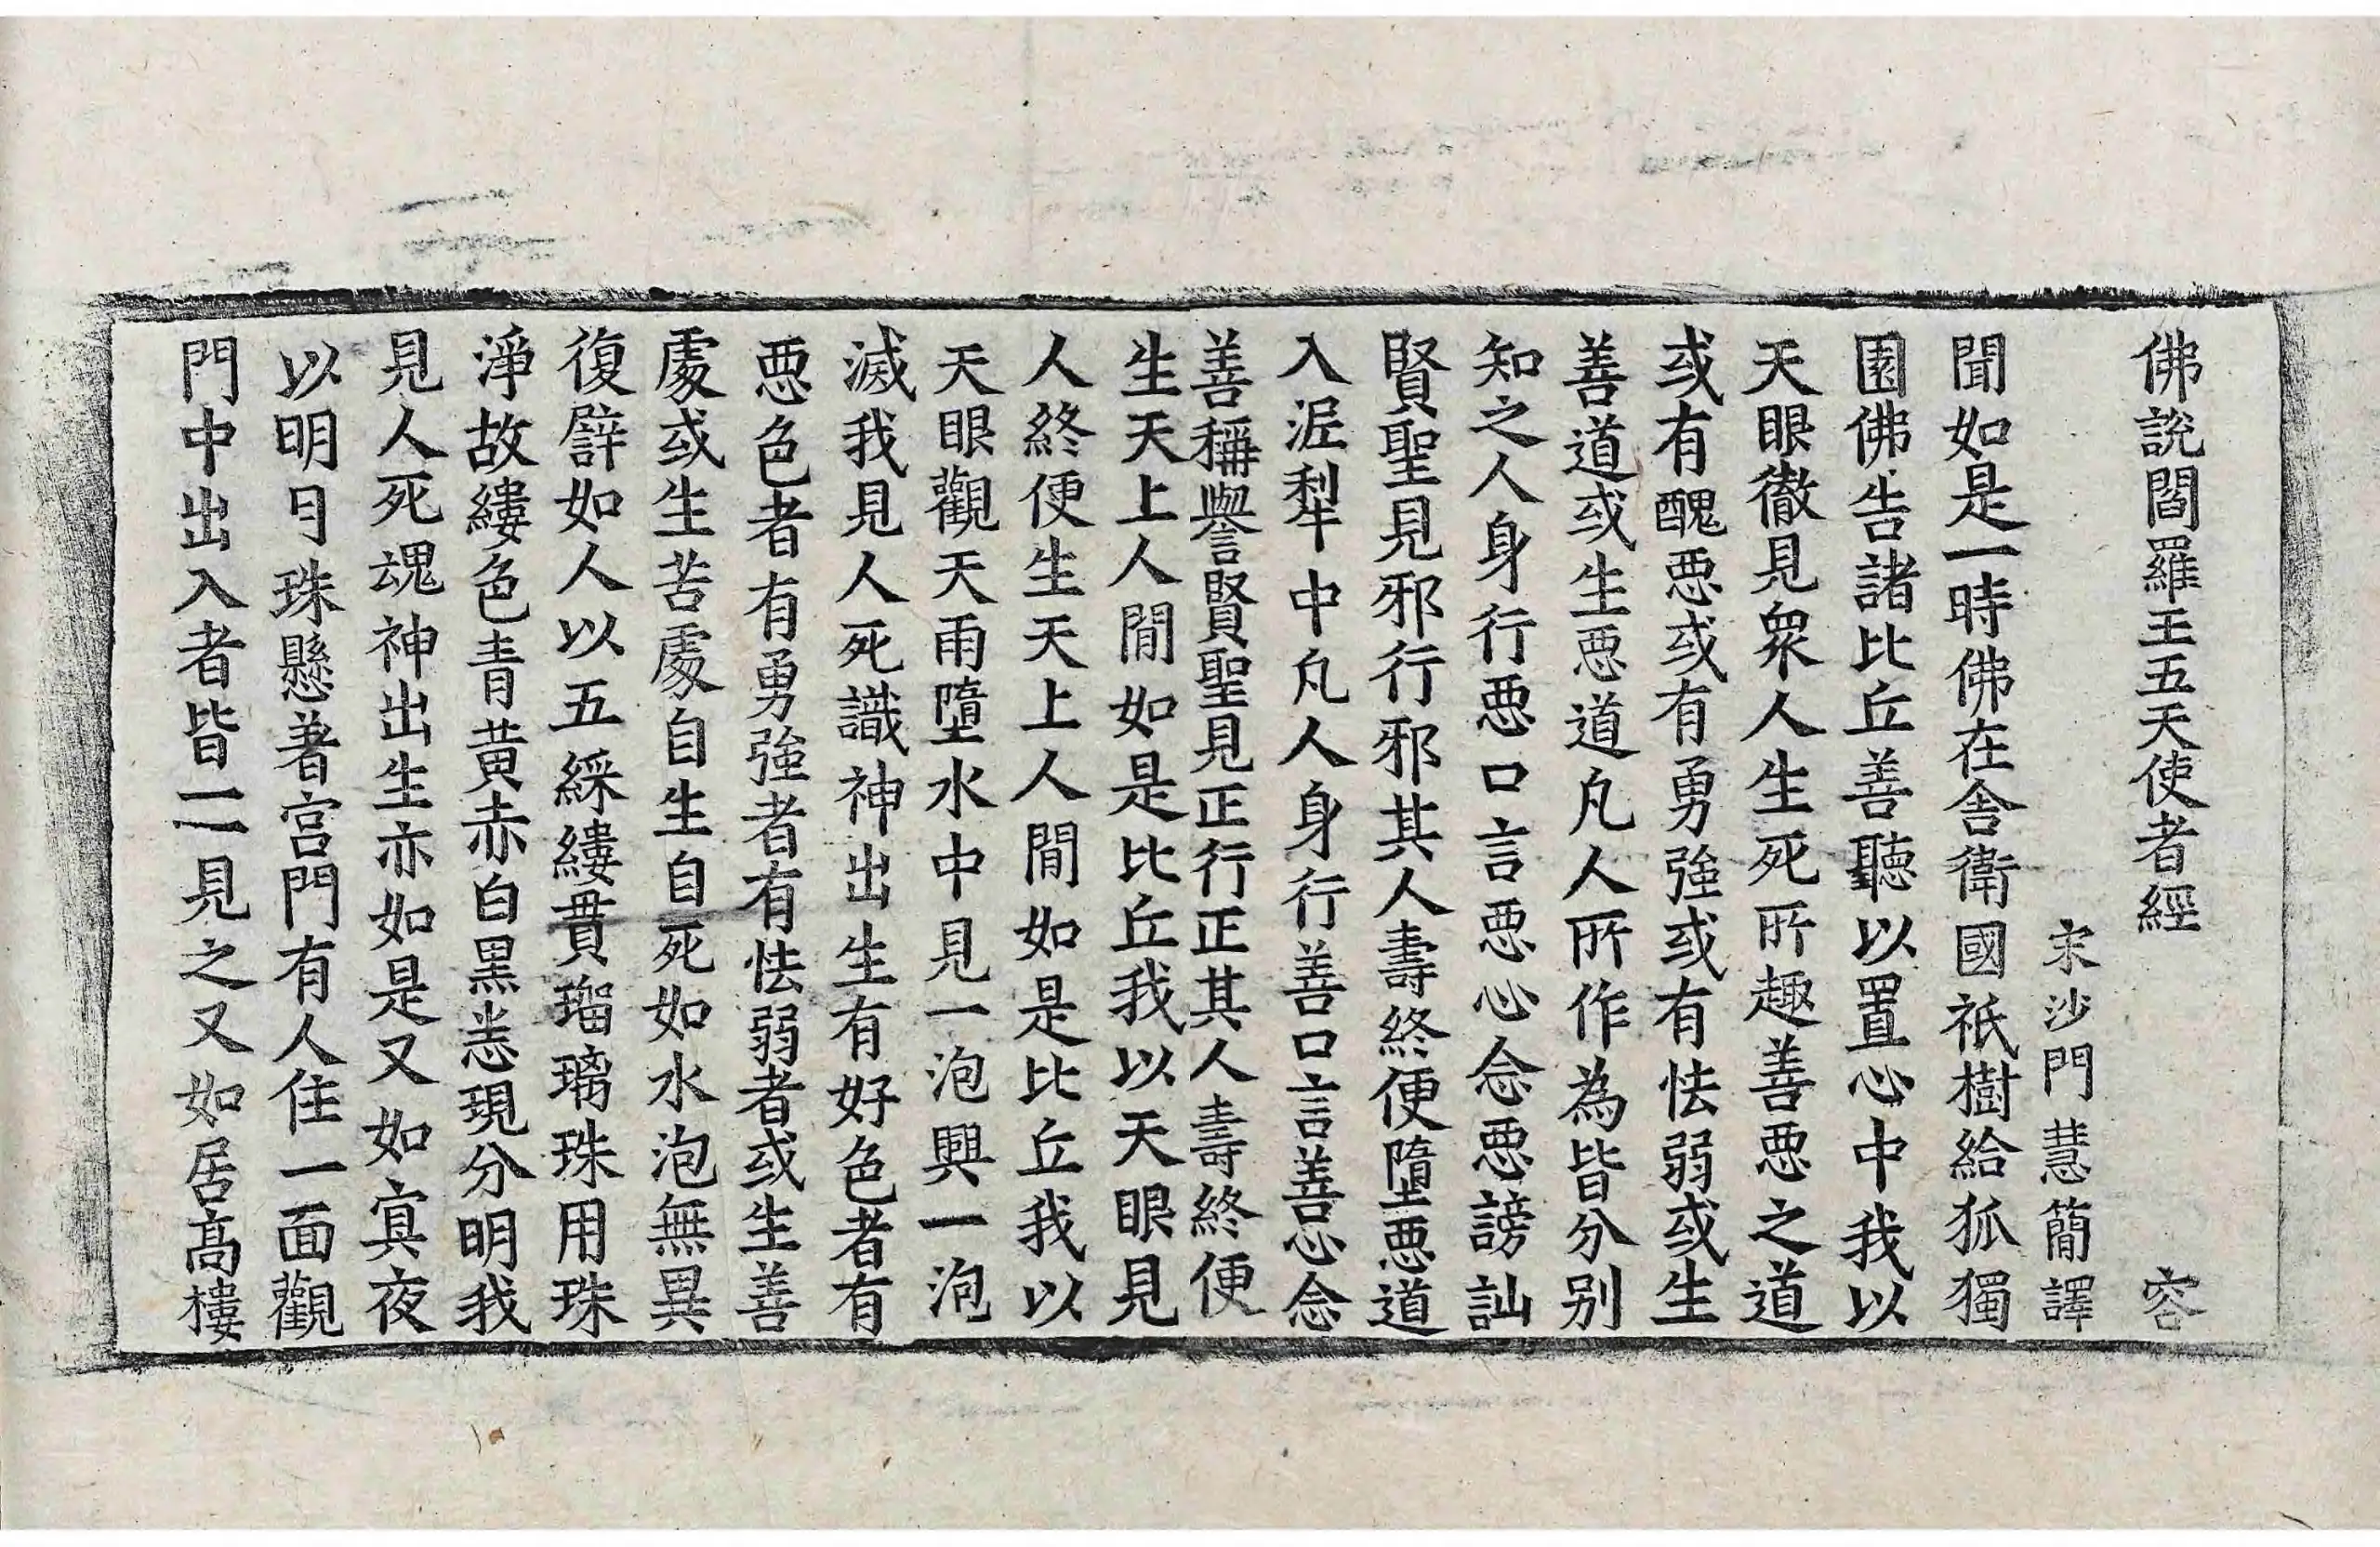 佛說閻羅王五天使者經 容
宋沙門慧簡譯
聞如是一時佛在舍衛國祇樹給孤獨
園佛告諸比丘善聽以置心中我以
天眼徹見衆人生死所趣善悪之道
或有醜悪或有勇強或有怯弱或生
善道或生悪道凡人所作為皆分別
知之人身行悪口言悪心念悪謗訕
賢聖見邪行邪其人壽終便墮悪道
入泥犁中凡人身行善口言善心念
善稱譽賢聖見正行正其人壽終便
生天上人間如是比丘我以天眼見
人終便生天上人間如是比丘我以
天眼觀天雨墮水中見一泡興一泡
滅我見人死識神出生有好色者有
悪色者有勇強者有怯弱者或生善
處或生苦處自生自死如水泡無異
復譬如人以五綵縷貫瑠璃珠用珠
淨故縷色青黃赤白黑恙現分明我
見人死魂神出生亦如是又如冥夜
以明月珠懸著宮門有人住一面觀
門中出入者皆一一見之又如居高樓